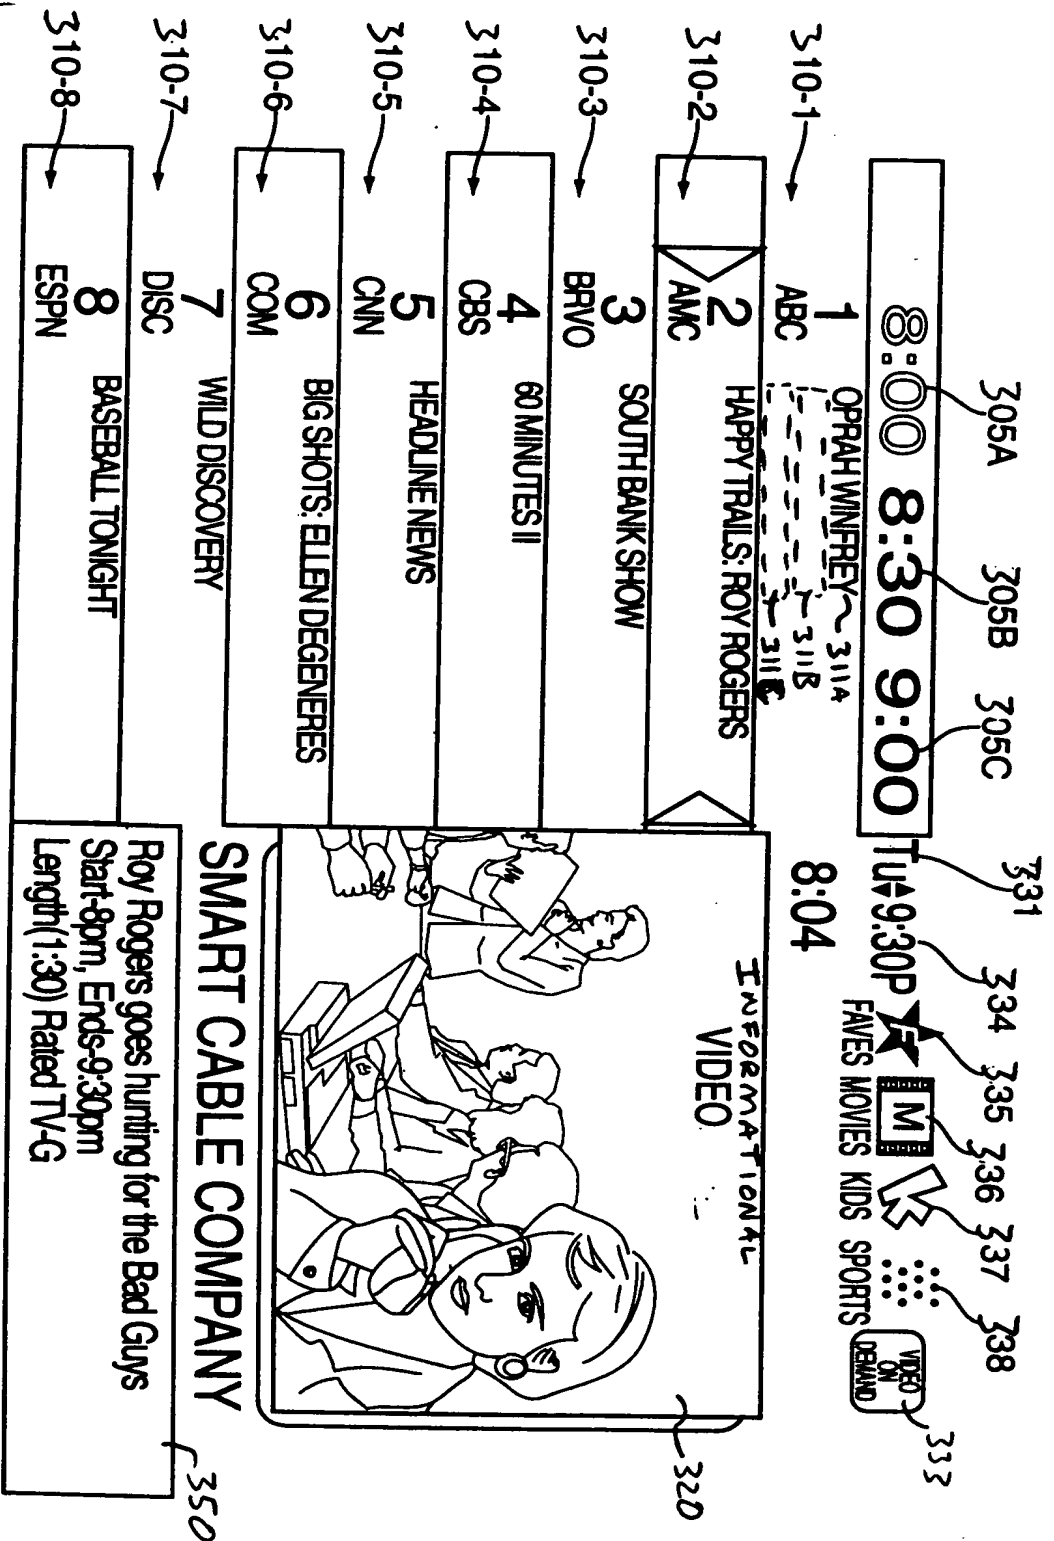 305A 305B 305C 331 334 335 336 337 338 333
8:00 8:30 9:00 Tu 9:30P F M K VIDEO
ON
DEMAND
FAVES MOVIES KIDS SPORTS
8:04
310-1 1 ABC OPRAH WINFREY 311A
311B
310-2 2 AMC HAPPY TRAILS: ROY ROGERS
310-3 3 BRVO SOUTH BANK SHOW
310-4 4 CBS 60 MINUTES II
310-5 5 CNN HEADLINE NEWS
310-6 6 COM BIG SHOTS: ELLEN DEGENERES
310-7 7 DISC WILD DISCOVERY
310-8 8 ESPN BASEBALL TONIGHT
INFORMATIONAL
VIDEO
320
SMART CABLE COMPANY
Roy Rogers goes hunting for the Bad Guys
Start-8pm, Ends-9:30pm
Length(1:30) Rated TV-G
350